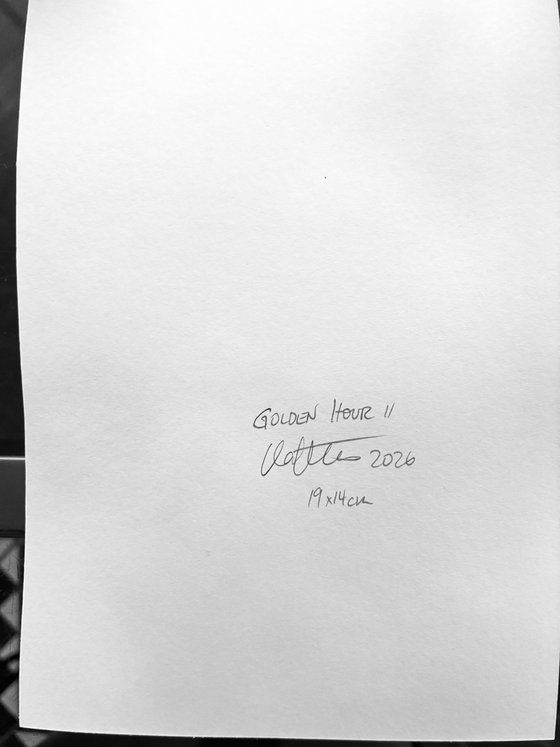 GOLDEN HOUR II
2026
19x14cm